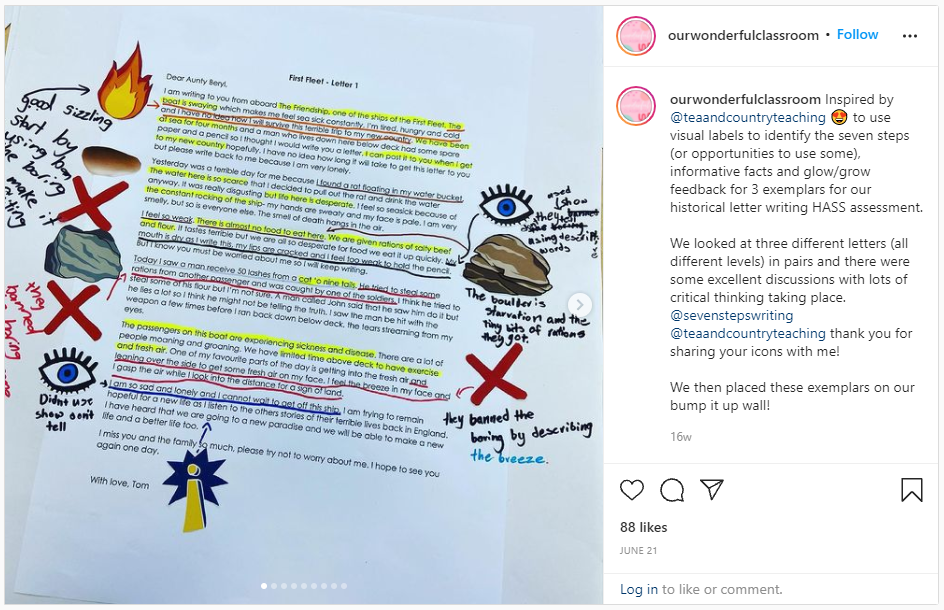 First Fleet - Letter 1
Dear Aunty Beryl,
I am writing to you from aboard The Friendship, one of the ships of the First Fleet. The
boat is swaying which makes me feel sea sick constantly. I'm tired, hungry and cold
and I have no idea how I will survive this terrible trip to my new country. We have been
at sea for four months and a man who lives down here below deck had some spare
paper and a pencil so I thought I would write you a letter. I can post it to you when I get
to my new country hopefully. I have no idea how long it will take to get this letter to you
but please write back to me because I am very lonely.
Yesterday was a terrible day for me because I found a rat floating in my water bucket.
The water here is so scarce that I decided to pull the rat out and drink the water
anyway. It was really disgusting but life here is desperate. I feel so seasick because of
the constant rocking of the ship- my hands are sweaty and my face is pale. I am very
smelly, but so is everyone else. The smell of death hangs in the air.
I feel so weak. There is almost no food to eat here. We are given rations of salty beef
and flour. It tastes terrible but we are all so desperate for food we eat it up quickly. My
mouth is dry as I write this, my lips are cracked and I feel too weak to hold the pencil.
But I know you must be worried about me so I will keep writing.
Today I saw a man receive 50 lashes from a cat 'o nine tails. He tried to steal some
rations from another passenger and was caught by one of the soldiers. I think he tried to
steal some of his flour but I'm not sure. A man called John said that he saw him do it but
he lies a lot so I think he might not be telling the truth. I saw the man be hit with the
weapon a few times before I ran back down below deck, the tears streaming from my
eyes.
The passengers on this boat are experiencing sickness and disease. There are a lot of
people moaning and groaning. We have limited time above deck to have exercise
and fresh air. One of my favourite parts of the day is getting into the fresh air and
leaning over the side to get some fresh air on my face. I feel the breeze in my face and
I gasp the air while I look into the distance for a sign of land.
I am so sad and lonely and I cannot wait to get off this ship. I am trying to remain
hopeful for a new life as I listen to the others stories of their terrible lives back in England.
I have heard that we are going to a new paradise and we will be able to make a new
life and a better life too.
I miss you and the family so much, please try not to worry about me. I hope to see you
again one day.
With love, Tom
good sizzling
start by
Didnt use
show don't
tell
The boulder is
starvation and the
tiny bits of rations
they got.
they banned the
boring by describing
the breeze.
ourwonderfulclassroom • Follow
ourwonderfulclassroom Inspired by
@teaandcountryteaching 😍 to use
visual labels to identify the seven steps
(or opportunities to use some),
informative facts and glow/grow
feedback for 3 exemplars for our
historical letter writing HASS assessment.
We looked at three different letters (all
different levels) in pairs and there were
some excellent discussions with lots of
critical thinking taking place.
@sevenstepswriting
@teaandcountryteaching thank you for
sharing your icons with me!
We then placed these exemplars on our
bump it up wall!
16w
88 likes
JUNE 21
Log in to like or comment.